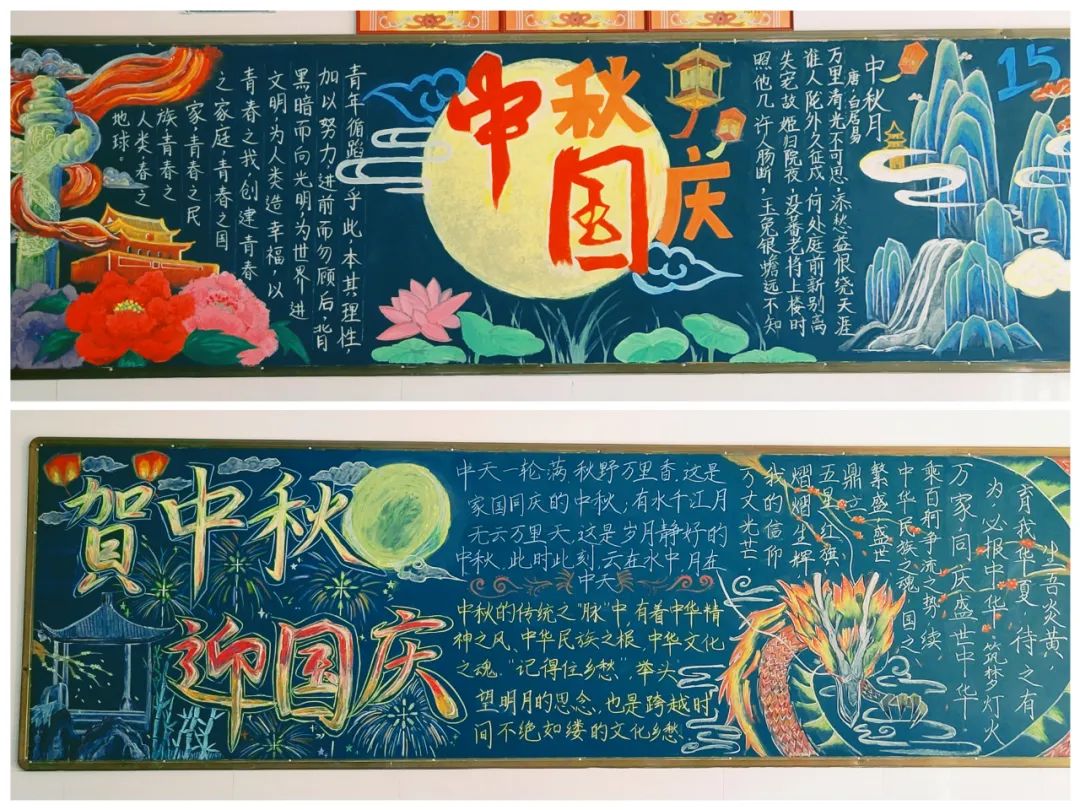 15
中秋月
唐·白居易
万里清光不可思,添愁益恨绕天涯
谁人陇外久征戍,何处庭前新别离
失宠故姬归院夜,没蕃老将上楼时
照他几许人肠断,玉兔银蟾远不知
中秋
国庆
青年循蹈乎此,本其理性,
加以努力,进前而勿顾后,背
黑暗而向光明,为世界进
文明,为人类造幸福,以
青春之我,创建青春
之家庭,青春之国
家,青春之民
族,青春之
人类,春之
地球。
賀中秋
迎国庆
中天一轮满,秋野万里香,这是
家国同庆的中秋;有水千江月
无云万里天,这是岁月静好的
中秋,此时此刻,云在水中,月在
中天
中秋的传统之“脉”中,有着中华精
神之风、中华民族之根、中华文化
之魂,“记得住乡愁”,举头
望明月的思念,也是跨越时
间不绝如缕的文化乡愁。
生吾炎黄,
育我华夏 待之有
为,必报中华 筑梦灯火
万家,同庆盛世中华.
乘百舸争流之势 续
中华民族之魂 国之
繁盛,盛世
鼎立
五星红旗
熠熠生辉
我的信仰
万丈光芒.